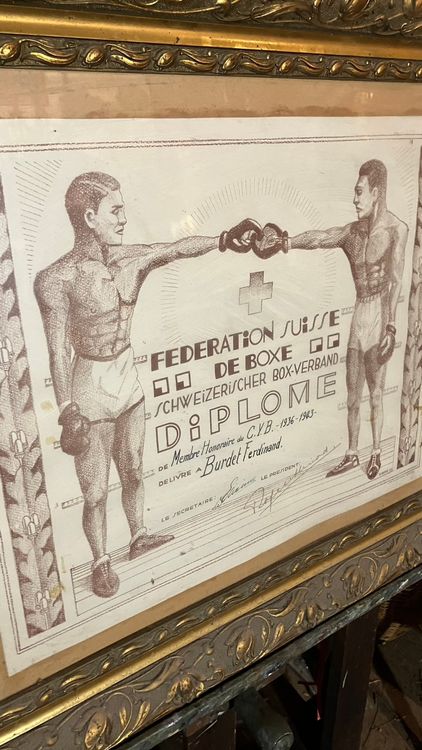 FEDERATION SUISSE
DE BOXE
SCHWEIZERISCHER BOX-VERBAND
DIPLOME
DE Membre Honoraire du C.Y.B. -1936-1943-
DELIVRE A Burdet Ferdinand.
LE SECRETAIRE LE PRESIDENT